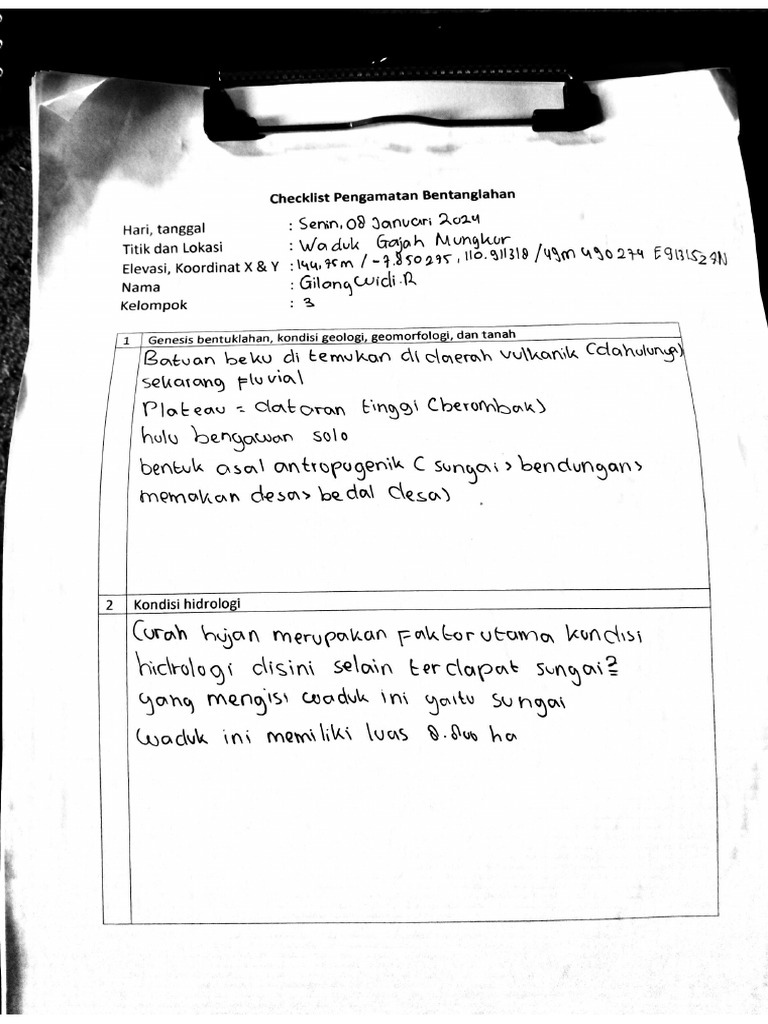 Checklist Pengamatan Bentanglahan
Hari, tanggal : Senin, 08 Januari 2024
Titik dan Lokasi : Waduk Gajah Mungkur
Elevasi, Koordinat X & Y : 144,75m / -7.850295, 110.911318 / 49m 490274 E9131529N
Nama : Gilang Widi.R
Kelompok : 3
1 Genesis bentuklahan, kondisi geologi, geomorfologi, dan tanah
Batuan beku di temukan di daerah vulkanik (dahulunya)
sekarang Fluvial
Plateau = dataran tinggi (berombak)
hulu bengawan solo
bentuk asal antropogenik ( sungai > bendungan >
memakan desa > bedal desa)
2 Kondisi hidrologi
Curah hujan merupakan Faktor utama kondisi
hidrologi disini selain terdapat sungai2
yang mengisi waduk ini yaitu sungai
waduk ini memiliki luas 8.800 ha